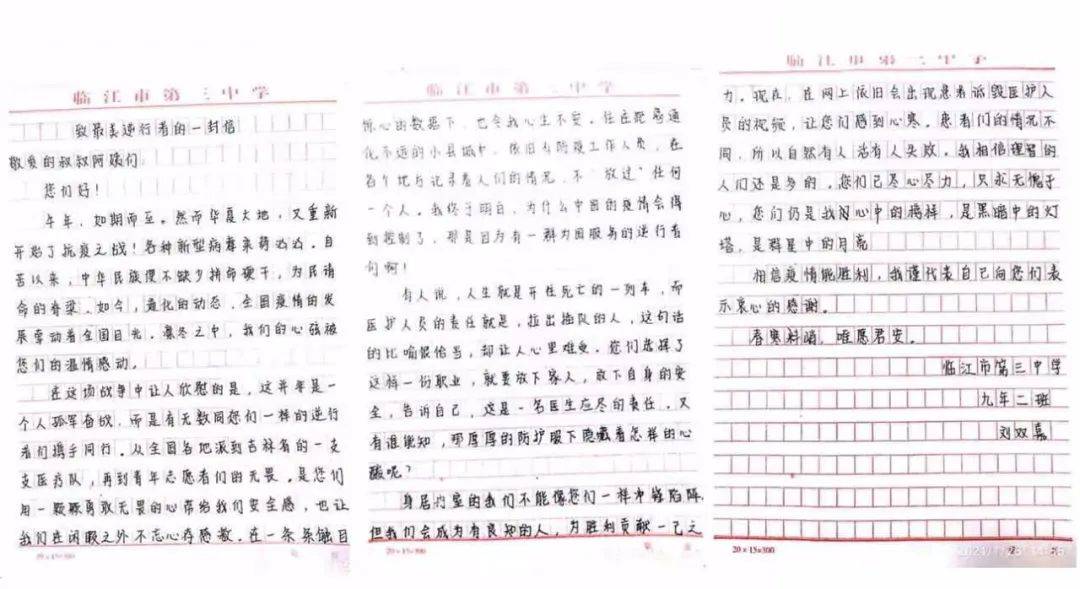 临江市第三中学
致最美逆行者的一封信
敬爱的叔叔阿姨们
您们好！
牛年，如期而至。然而华夏大地，又重新
开始了抗疫之战！各种新型病毒来势汹汹。自
古以来，中华民族便不缺少拼命硬干，为民请
命的脊梁。如今，通化的动态，全国疫情的发
展牵动着全国目光。寒冬之中，我们的心弦被
您们的温情感动。
在这场战争中让人欣慰的是，这并非是一
个人孤军奋战，而是有无数同您们一样的逆行
者们携手同行。从全国各地派到吉林省的一支
支医疗队，再到青年志愿者们的无畏。是您们
用一颗颗勇敢无畏的心带给我们安全感，也让
我们在闲暇之外不忘心存感激。在一条条触目
20×15=300
临江市第三中学
惊心的数据下，也令我心生不安。住在距离通
化不远的小县城中，依旧有防疫工作人员，在
各个地方记录着人们的情况，不“放过”任何
一个人。我终于明白，为什么中国的疫情会得
到控制了，那是因为有一群为国服务的逆行者
们啊！
有人说，人生就是开往死亡的一列车，而
医护人员的责任就是，拉出插队的人，这句话
的比喻很恰当，却让人心里难受。您们选择了
这样一份职业，就要放下家人，放下自身的安
全，告诉自己，这是一名医生应尽的责任。又
有谁能知，那厚厚的防护服下隐藏着怎样的心
酸呢？
身居内室的我们不能像您们一样冲锋陷阵，
但我们会成为有良知的人，为胜利贡献一己之
20×15=300
临江市第三中学
力。现在，在网上依旧会出现患者诋毁医护人
员的视频，让您们感到心寒。患者们的情况不
同，所以自然有人活有人失败。我相信理智的
人们还是多的。您们已尽心尽力，只求无愧于
心，您们仍是我们心中的榜样，是黑暗中的灯
塔，是群星中的月亮
相信疫情能胜利，我谨代表自己向您们表
示衷心的感谢。
春寒料峭，唯愿君安。
临江市第三中学
九年二班
刘双嘉
20×15=300